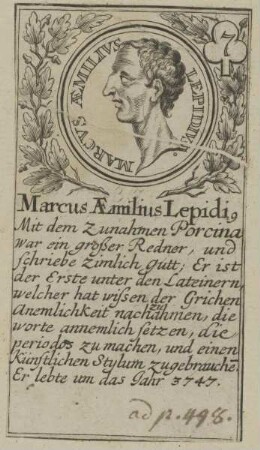 7
MARCVS ÆMILIVS LEPIDIVS.
Marcus Æmilius Lepidi9
Mit dem Zunahmen Porcina
war ein großer Redner, und
schriebe zimlich gutt; Er ist
der Erste unter den Lateinern,
welcher hat wißen der Grichen
Anemlichkeit nachzuahmen, die
worte annemlich setzen, die
periodos zu machen, und einen
Künstlichen Stylum zugebrauchē.
Er lebte um das Jahr 3747.
ad p. 498.